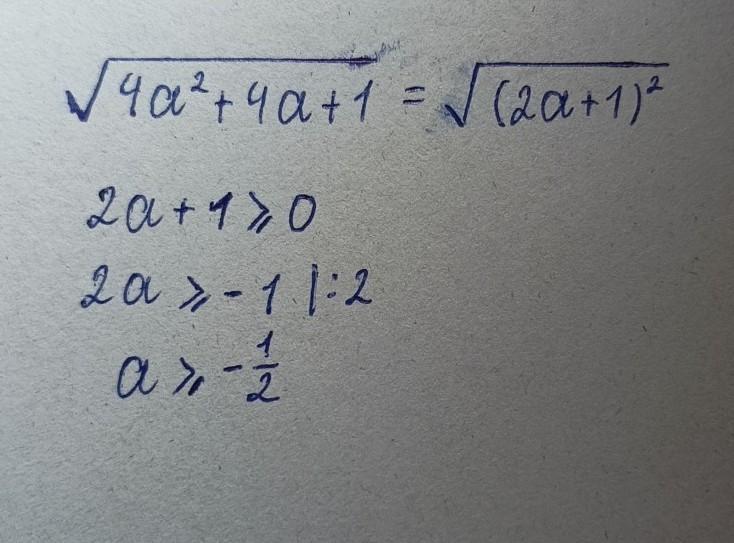 √(4a²+4a+1) = √((2a+1)²)
2a+1⩾0
2a ⩾ -1 |:2
a ⩾ -1/2